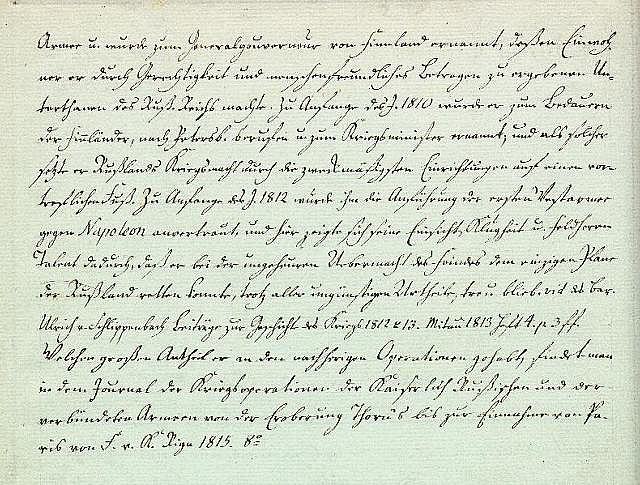 Armee u. wurde zum Generalgouverneur von Finnland ernannt, deßen Einwoh-
ner er durch Gerechtigkeit und menschenfreundliches Betragen zu ergebenen Un-
terthanen des Ruß. Reichs machte. Zu Anfange des J. 1810 wurde er zum Bedauern
der Finländer, nach Petersb. berufen u. zum Kriegsminister ernannt, und als solcher
setzte er Rußlands Kriegsmacht durch die zweckmäßigsten Einrichtungen auf einen vor-
treflichen Fuß. Zu Anfange des J. 1812 wurde ihm die Anführung der ersten Westarmee
gegen Napoleon anvertraut, und hier zeigte sich seine Einsicht, Klugheit u. Feldherrn
Talent dadurch, daß er bei der ungeheuren Uebermacht des Feindes dem einzigen Plane
der Rußland retten konnte, trotz aller ungünstigen Urtheile, treu blieb. vid. des Bar.
Ulrich v. Schlippenbach Beiträge zur Geschicht des Kriegs 1812 u 13. Mitau 1813 Heft 4. p. 3 ff.
Welchen großen Antheil er an den nachherigen Operationen gehabt, findet man
in dem Journal der Kriegsoperationen der Kaiserlich Rußischen und der
verbündeten Armeen von der Eroberung Thorns bis zur Einnahme von Pa-
ris von F. v. R. Riga 1815. 8º